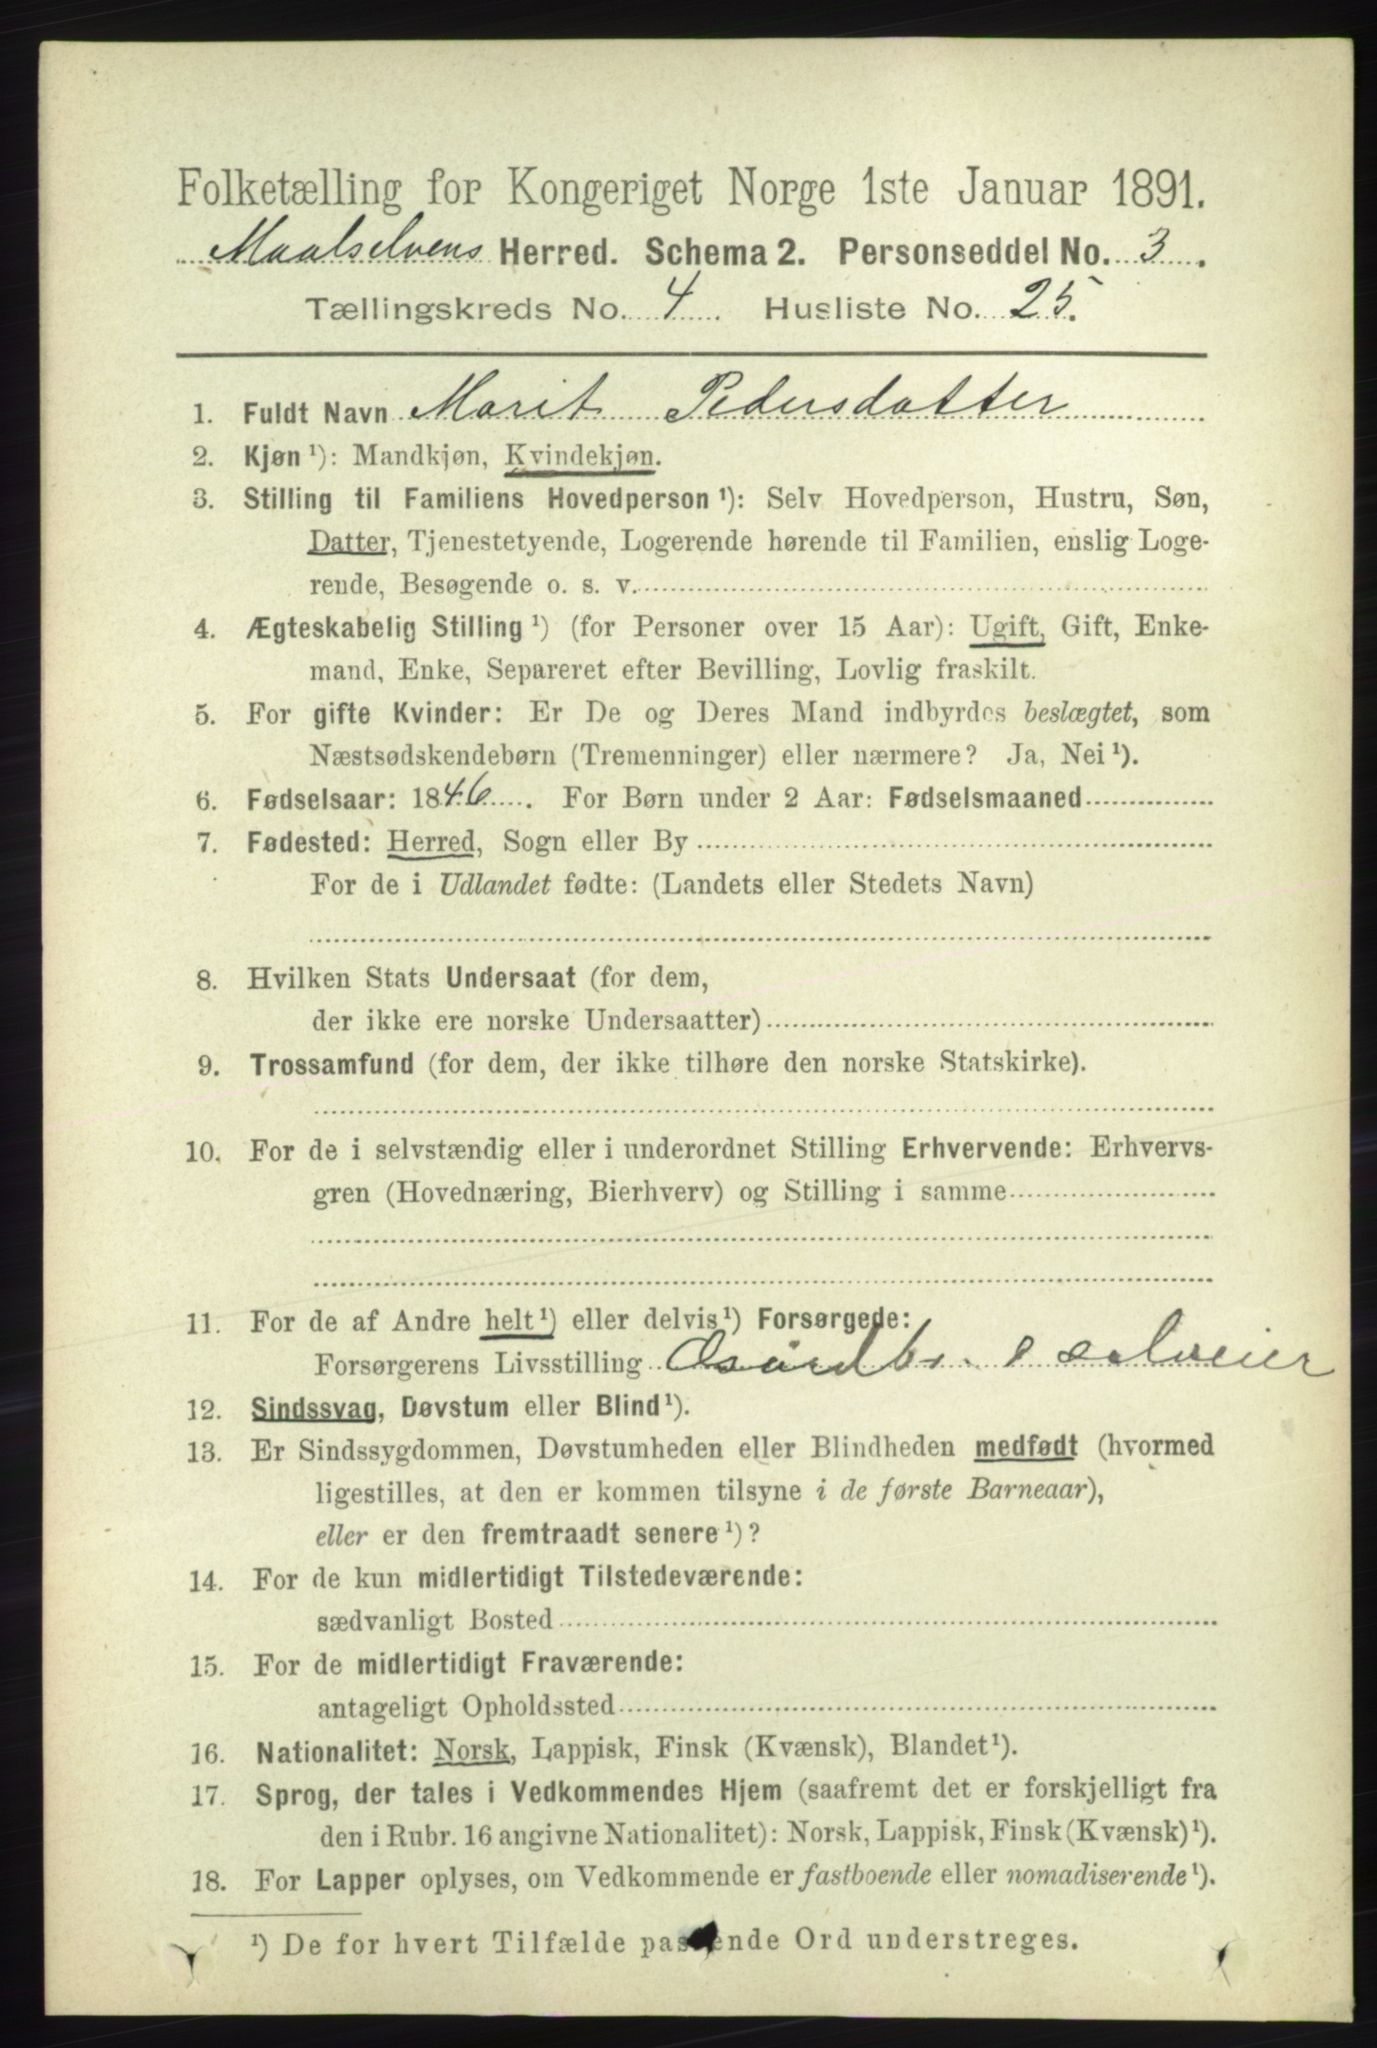 Folketælling for Kongeriget Norge 1ste Januar 1891.
Maalselvens Herred. Schema 2. Personseddel No. 3.
Tællingskreds No. 4. Husliste No. 25.
1. Fuldt Navn Marit Pedersdatter
2. Kjøn ¹): Mandkjøn, Kvindekjøn.
3. Stilling til Familiens Hovedperson ¹): Selv Hovedperson, Hustru, Søn,
Datter, Tjenestetyende, Logerende hørende til Familien, enslig Loge-
rende, Besøgende o. s. v.
4. Ægteskabelig Stilling ¹) (for Personer over 15 Aar): Ugift, Gift, Enke-
mand, Enke, Separeret efter Bevilling, Lovlig fraskilt.
5. For gifte Kvinder: Er De og Deres Mand indbyrdes beslægtet, som
Næstsødskendebørn (Tremenninger) eller nærmere? Ja, Nei ¹).
6. Fødselsaar: 1846. For Børn under 2 Aar: Fødselsmaaned
7. Fødested: Herred, Sogn eller By
For de i Udlandet fødte: (Landets eller Stedets Navn)
8. Hvilken Stats Undersaat (for dem,
der ikke ere norske Undersaatter)
9. Trossamfund (for dem, der ikke tilhøre den norske Statskirke).
10. For de i selvstændig eller i underordnet Stilling Erhvervende: Erhvervs-
gren (Hovednæring, Bierhverv) og Stilling i samme
11. For de af Andre helt ¹) eller delvis ¹) Forsørgede:
Forsørgerens Livsstilling
12. Sindssvag, Døvstum eller Blind ¹).
13. Er Sindssygdommen, Døvstumheden eller Blindheden medfødt (hvormed
ligestilles, at den er kommen tilsyne i de første Barneaar),
eller er den fremtraadt senere ¹)?
14. For de kun midlertidigt Tilstedeværende:
sædvanligt Bosted
15. For de midlertidigt Fraværende:
antageligt Opholdssted
16. Nationalitet: Norsk, Lappisk, Finsk (Kvænsk), Blandet ¹).
17. Sprog, der tales i Vedkommendes Hjem (saafremt det er forskjelligt fra
den i Rubr. 16 angivne Nationalitet): Norsk, Lappisk, Finsk (Kvænsk) ¹).
18. For Lapper oplyses, om Vedkommende er fastboende eller nomadiserende ¹).
¹) De for hvert Tilfælde passende Ord understreges.